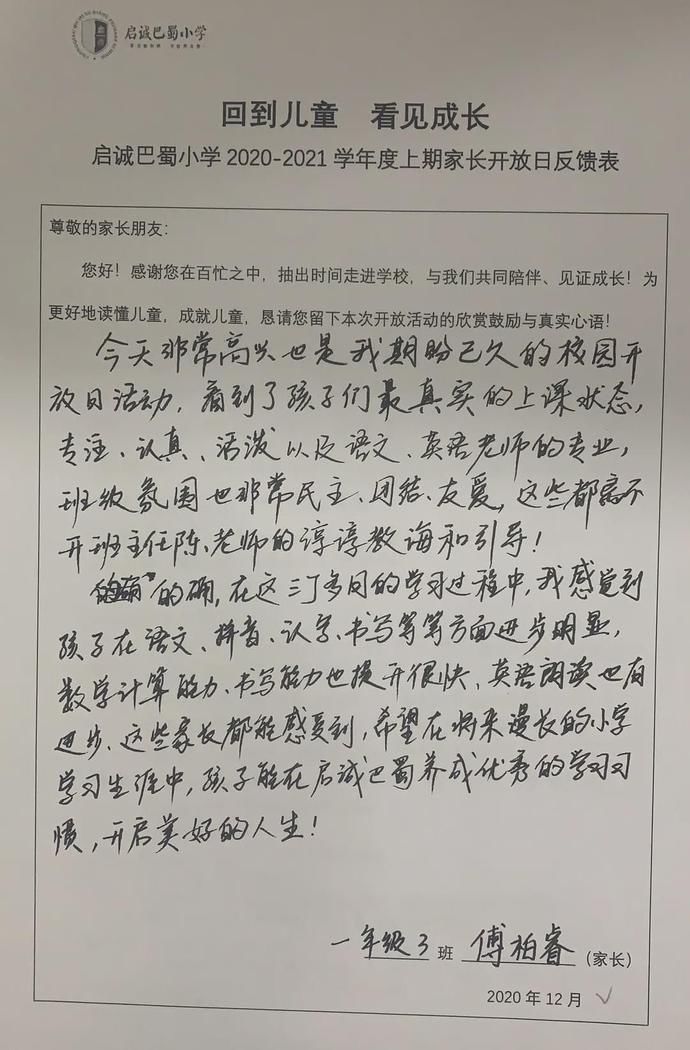 启诚巴蜀小学
回到儿童 看见成长
启诚巴蜀小学 2020-2021 学年度上期家长开放日反馈表
尊敬的家长朋友：
您好！感谢您在百忙之中，抽出时间走进学校，与我们共同陪伴、见证成长！为
更好地读懂儿童，成就儿童，恳请您留下本次开放活动的欣赏鼓励与真实心语！
今天非常高兴也是我期盼已久的校园开
放日活动，看到了孩子们最真实的上课状态，
专注、认真、活泼以及语文、英语老师的专业，
班级氛围也非常民主、团结、友爱，这些都离不
开班主任陈老师的谆谆教诲和引导！
的确，在这三个多月的学习过程中，我感觉到
孩子在语文、拼音、认字、书写等等方面进步明显，
数学计算能力、书写能力也提升很快，英语朗读也有
进步、这些家长都能感受到，希望在将来漫长的小学
学习生涯中，孩子能在启诚巴蜀养成优秀的学习习
惯，开启美好的人生！
一年级3 班 傅柏睿 （家长）
2020 年 12 月 ✓